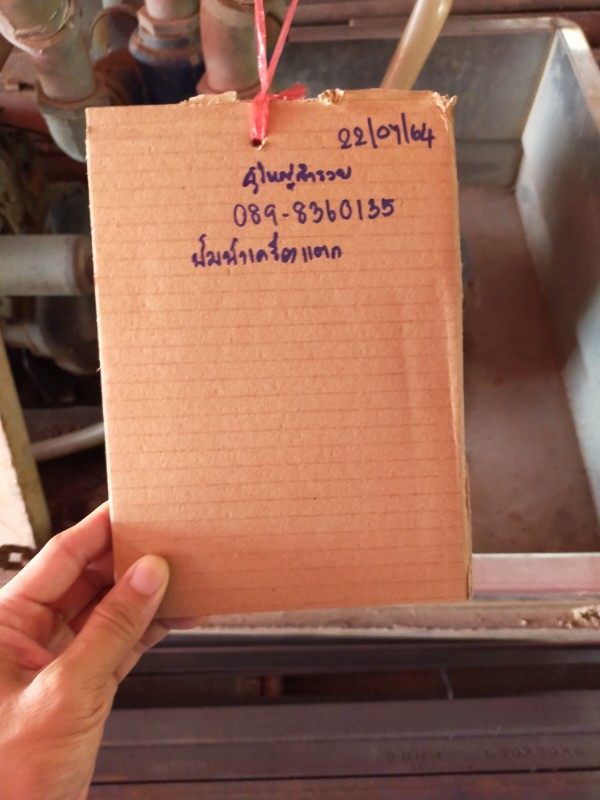 22/07/64
ผู้ใหญ่สำรวย
089-8360135
ปั๊มน้ำเครื่องแตก